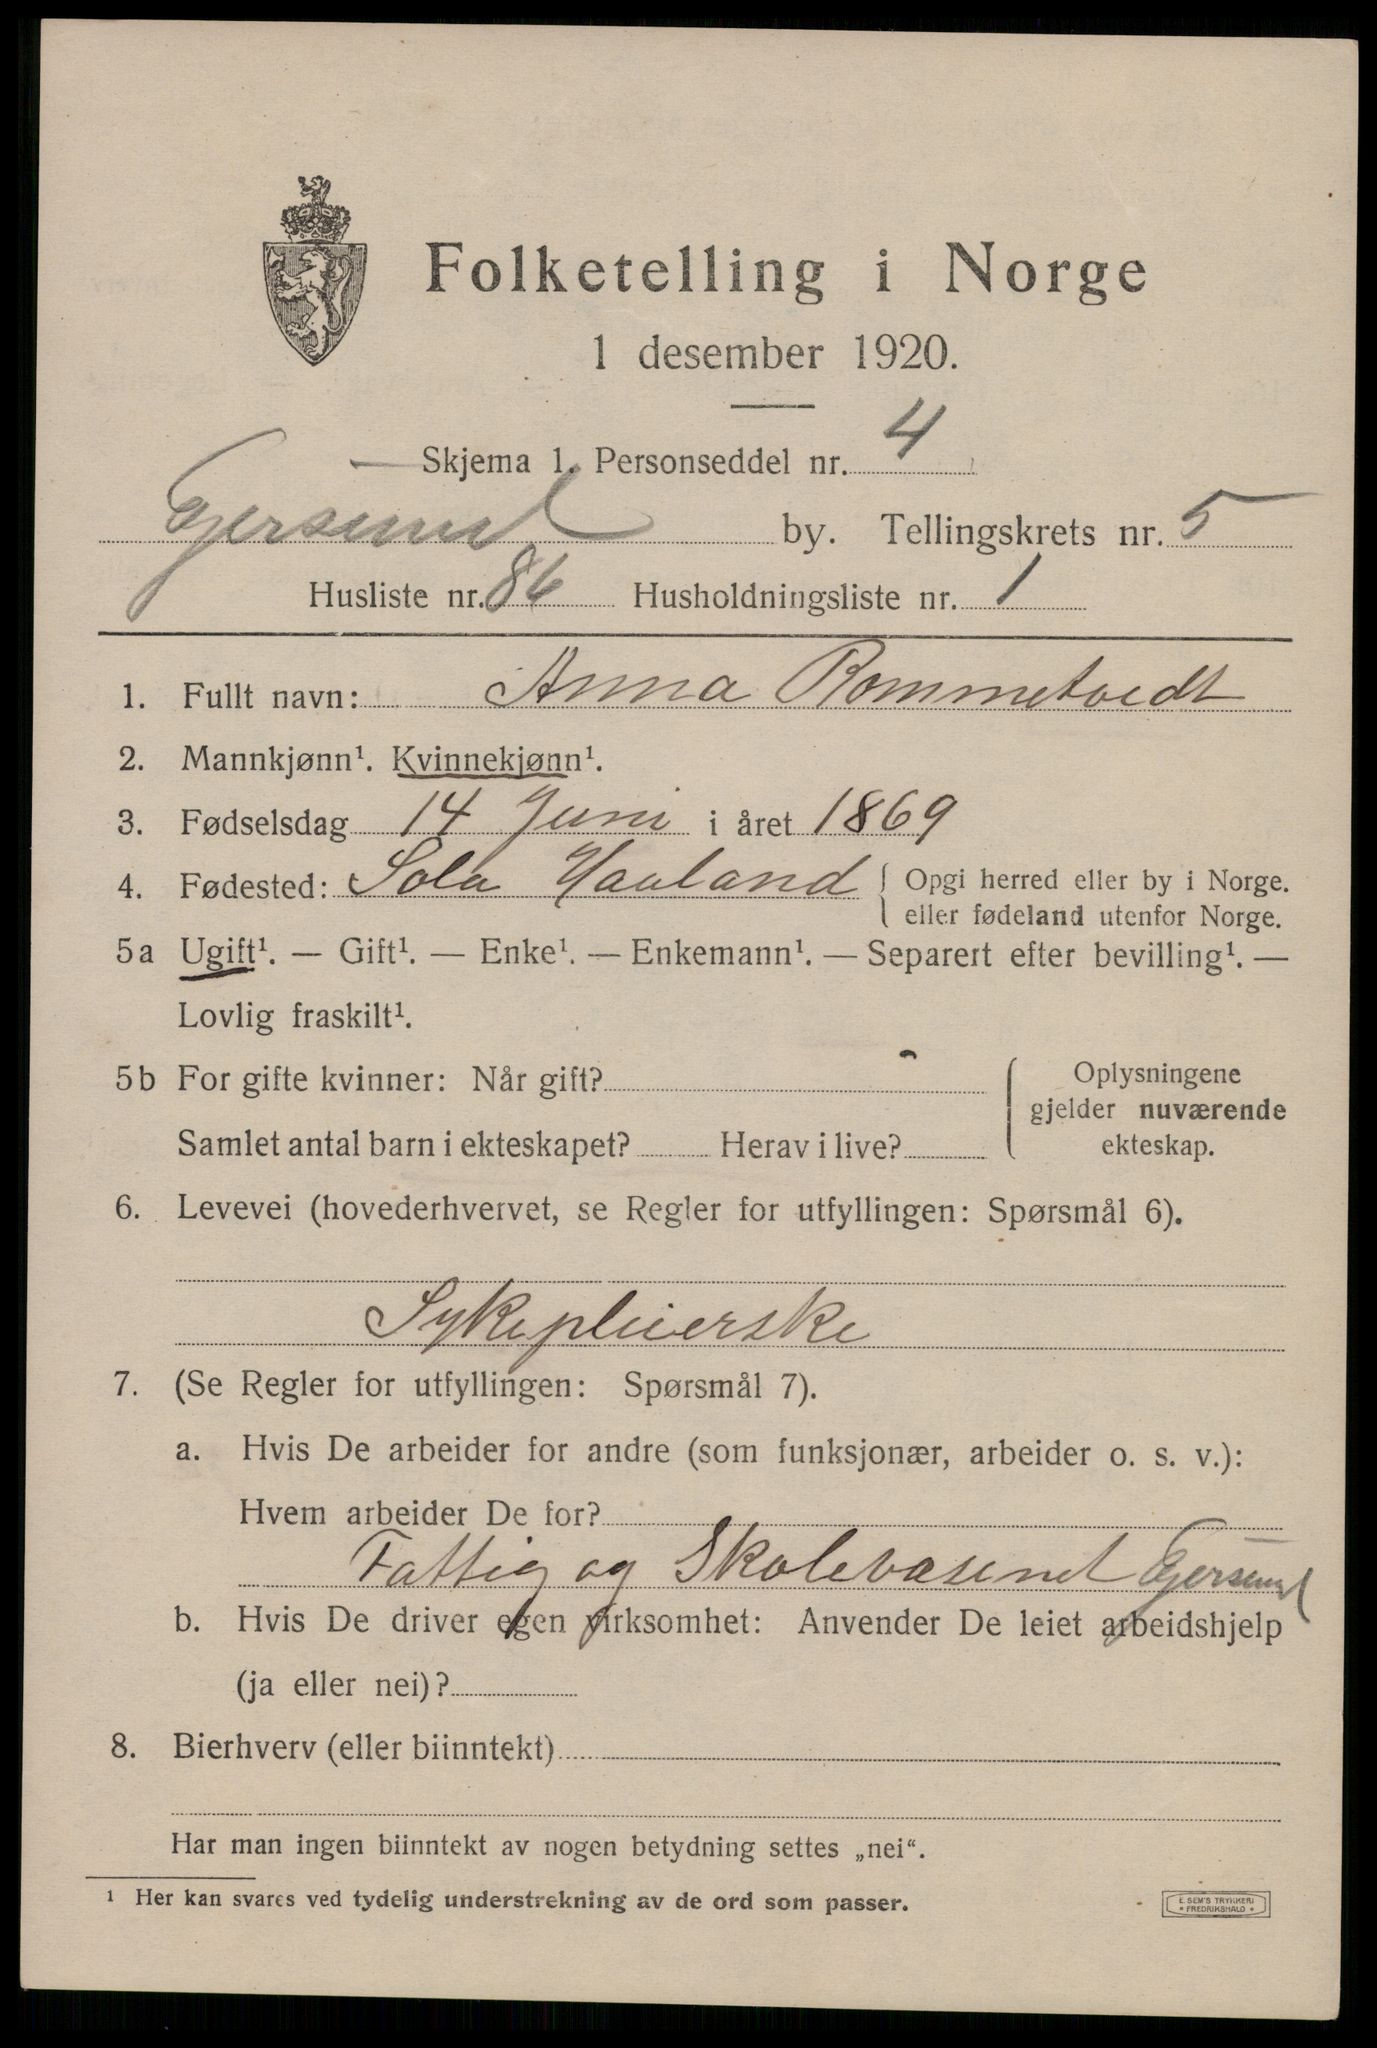 Folketelling i Norge
1 desember 1920.
Skjema 1. Personseddel nr. 4
Egersund by. Tellingskrets nr. 5
Husliste nr. 86 Husholdningsliste nr. 1
1. Fullt navn: Anna Rommetvedt
2. Mannkjønn¹. Kvinnekjønn¹.
3. Fødselsdag 14 Juni i året 1869
4. Fødested: Sola Haaland { Opgi herred eller by i Norge.
eller fødeland utenfor Norge.
5a Ugift¹. — Gift¹. — Enke¹. — Enkemann¹. — Separert efter bevilling¹. —
Lovlig fraskilt¹.
5b For gifte kvinner: Når gift?
Samlet antal barn i ekteskapet? Herav i live?
Oplysningene
gjelder nuværende
ekteskap.
6. Levevei (hovederhvervet, se Regler for utfyllingen: Spørsmål 6).
Sykepleierske
7. (Se Regler for utfyllingen: Spørsmål 7).
a. Hvis De arbeider for andre (som funksjonær, arbeider o. s. v.):
Hvem arbeider De for?
Fattig og Skolevæsenet Egersund
b. Hvis De driver egen virksomhet: Anvender De leiet arbeidshjelp
(ja eller nei)?
8. Bierhverv (eller biinntekt)
Har man ingen biinntekt av nogen betydning settes „nei“.
¹ Her kan svares ved tydelig understrekning av de ord som passer.
E. SEM'S TRYKKERI
* FREDRIKSHALD *